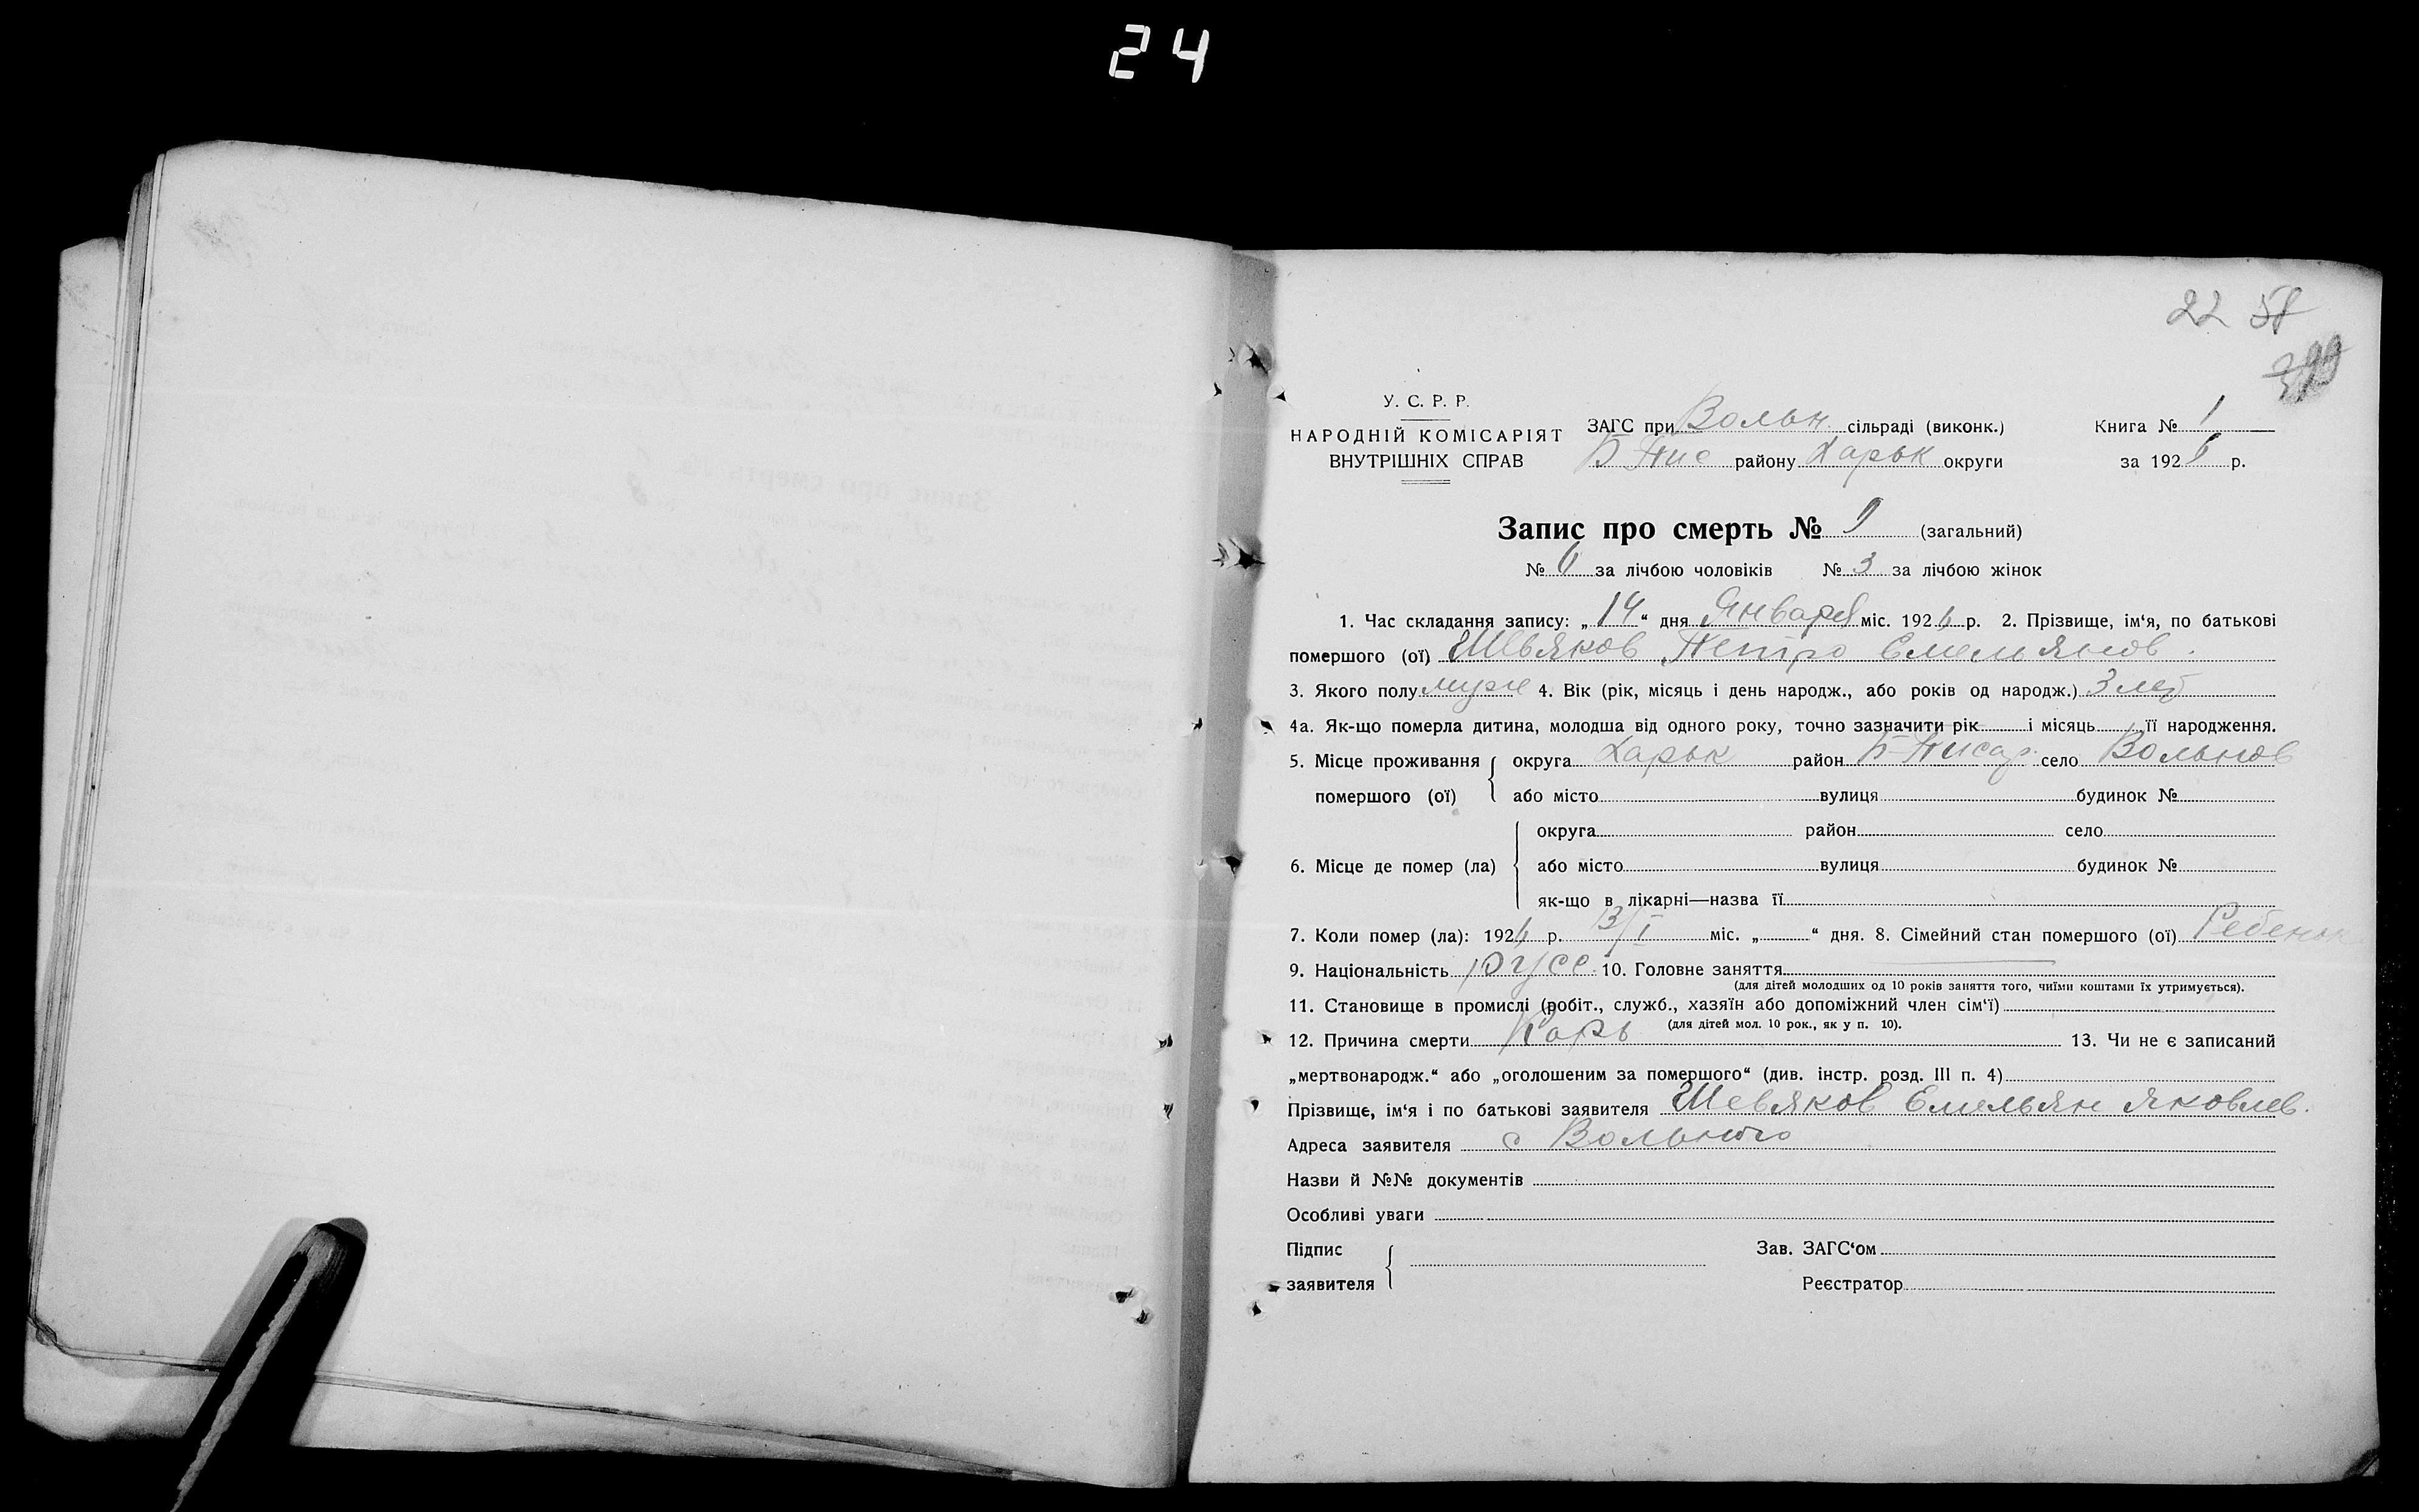 24
22 58
У. С. Р. Р.
НАРОДНІЙ КОМІСАРІЯТ
ВНУТРІШНІХ СПРАВ
ЗАГС при Вольн. сільраді (виконк.)
Б Пис району Харьк округи
Книга № 1
за 1926 р.
Запис про смерть № 9 (загальний)
№ 6 за лічбою чоловіків № 3 за лічбою жінок
1. Час складання запису: „14“ дня Января міс. 1926 р. 2. Прізвище, ім‘я, по батькові
помершого (ої) Шевяков Петро Емельянов.
3. Якого полу муж 4. Вік (рік, місяць і день народж., або років од народж.) 3 лет
4а. Як-що померла дитина, молодша від одного року, точно зазначити рік і місяць її народження.
5. Місце проживання помершого (ої) { округа Харьк район Б-Писар. село Вольнов
або місто вулиця будинок №
6. Місце де помер (ла) { округа район село
або місто вулиця будинок №
як-що в лікарні—назва її
7. Коли помер (ла): 1926 р. 13/I міс. „ “ дня. 8. Сімейний стан помершого (ої) Ребенок
9. Національність русс. 10. Головне заняття
(для дітей молодших од 10 років заняття того, чиїми коштами їх утримується).
11. Становище в промислі (робіт., служб., хазяїн або допоміжний член сім‘ї)
(для дітей мол. 10 рок., як у п. 10).
12. Причина смерти Корь 13. Чи не є записаний
„мертвонародж.“ або „оголошеним за помершого“ (див. інстр. розд. III п. 4)
Прізвище, ім‘я і по батькові заявителя Шевяков Емельян Яковлев.
Адреса заявителя с Вольного
Назви й №№ документів
Особливі уваги
Підпис
заявителя {
Зав. ЗАГС‘ом
Реєстратор